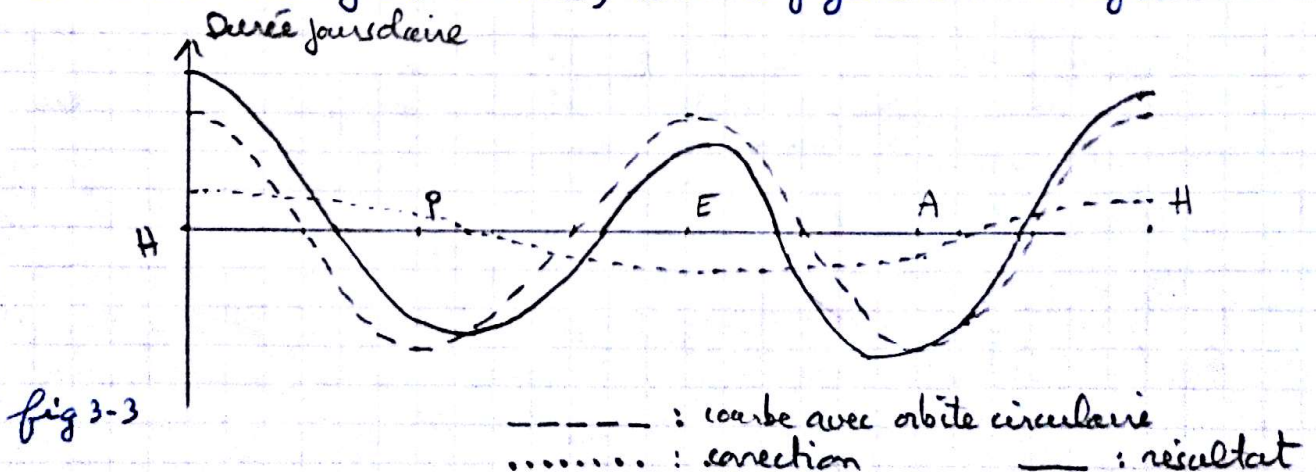 Durée journalaire
P
E
A
H
H
fig 3-3
----- : courbe avec orbite circulaire
........ : correction — : résultat